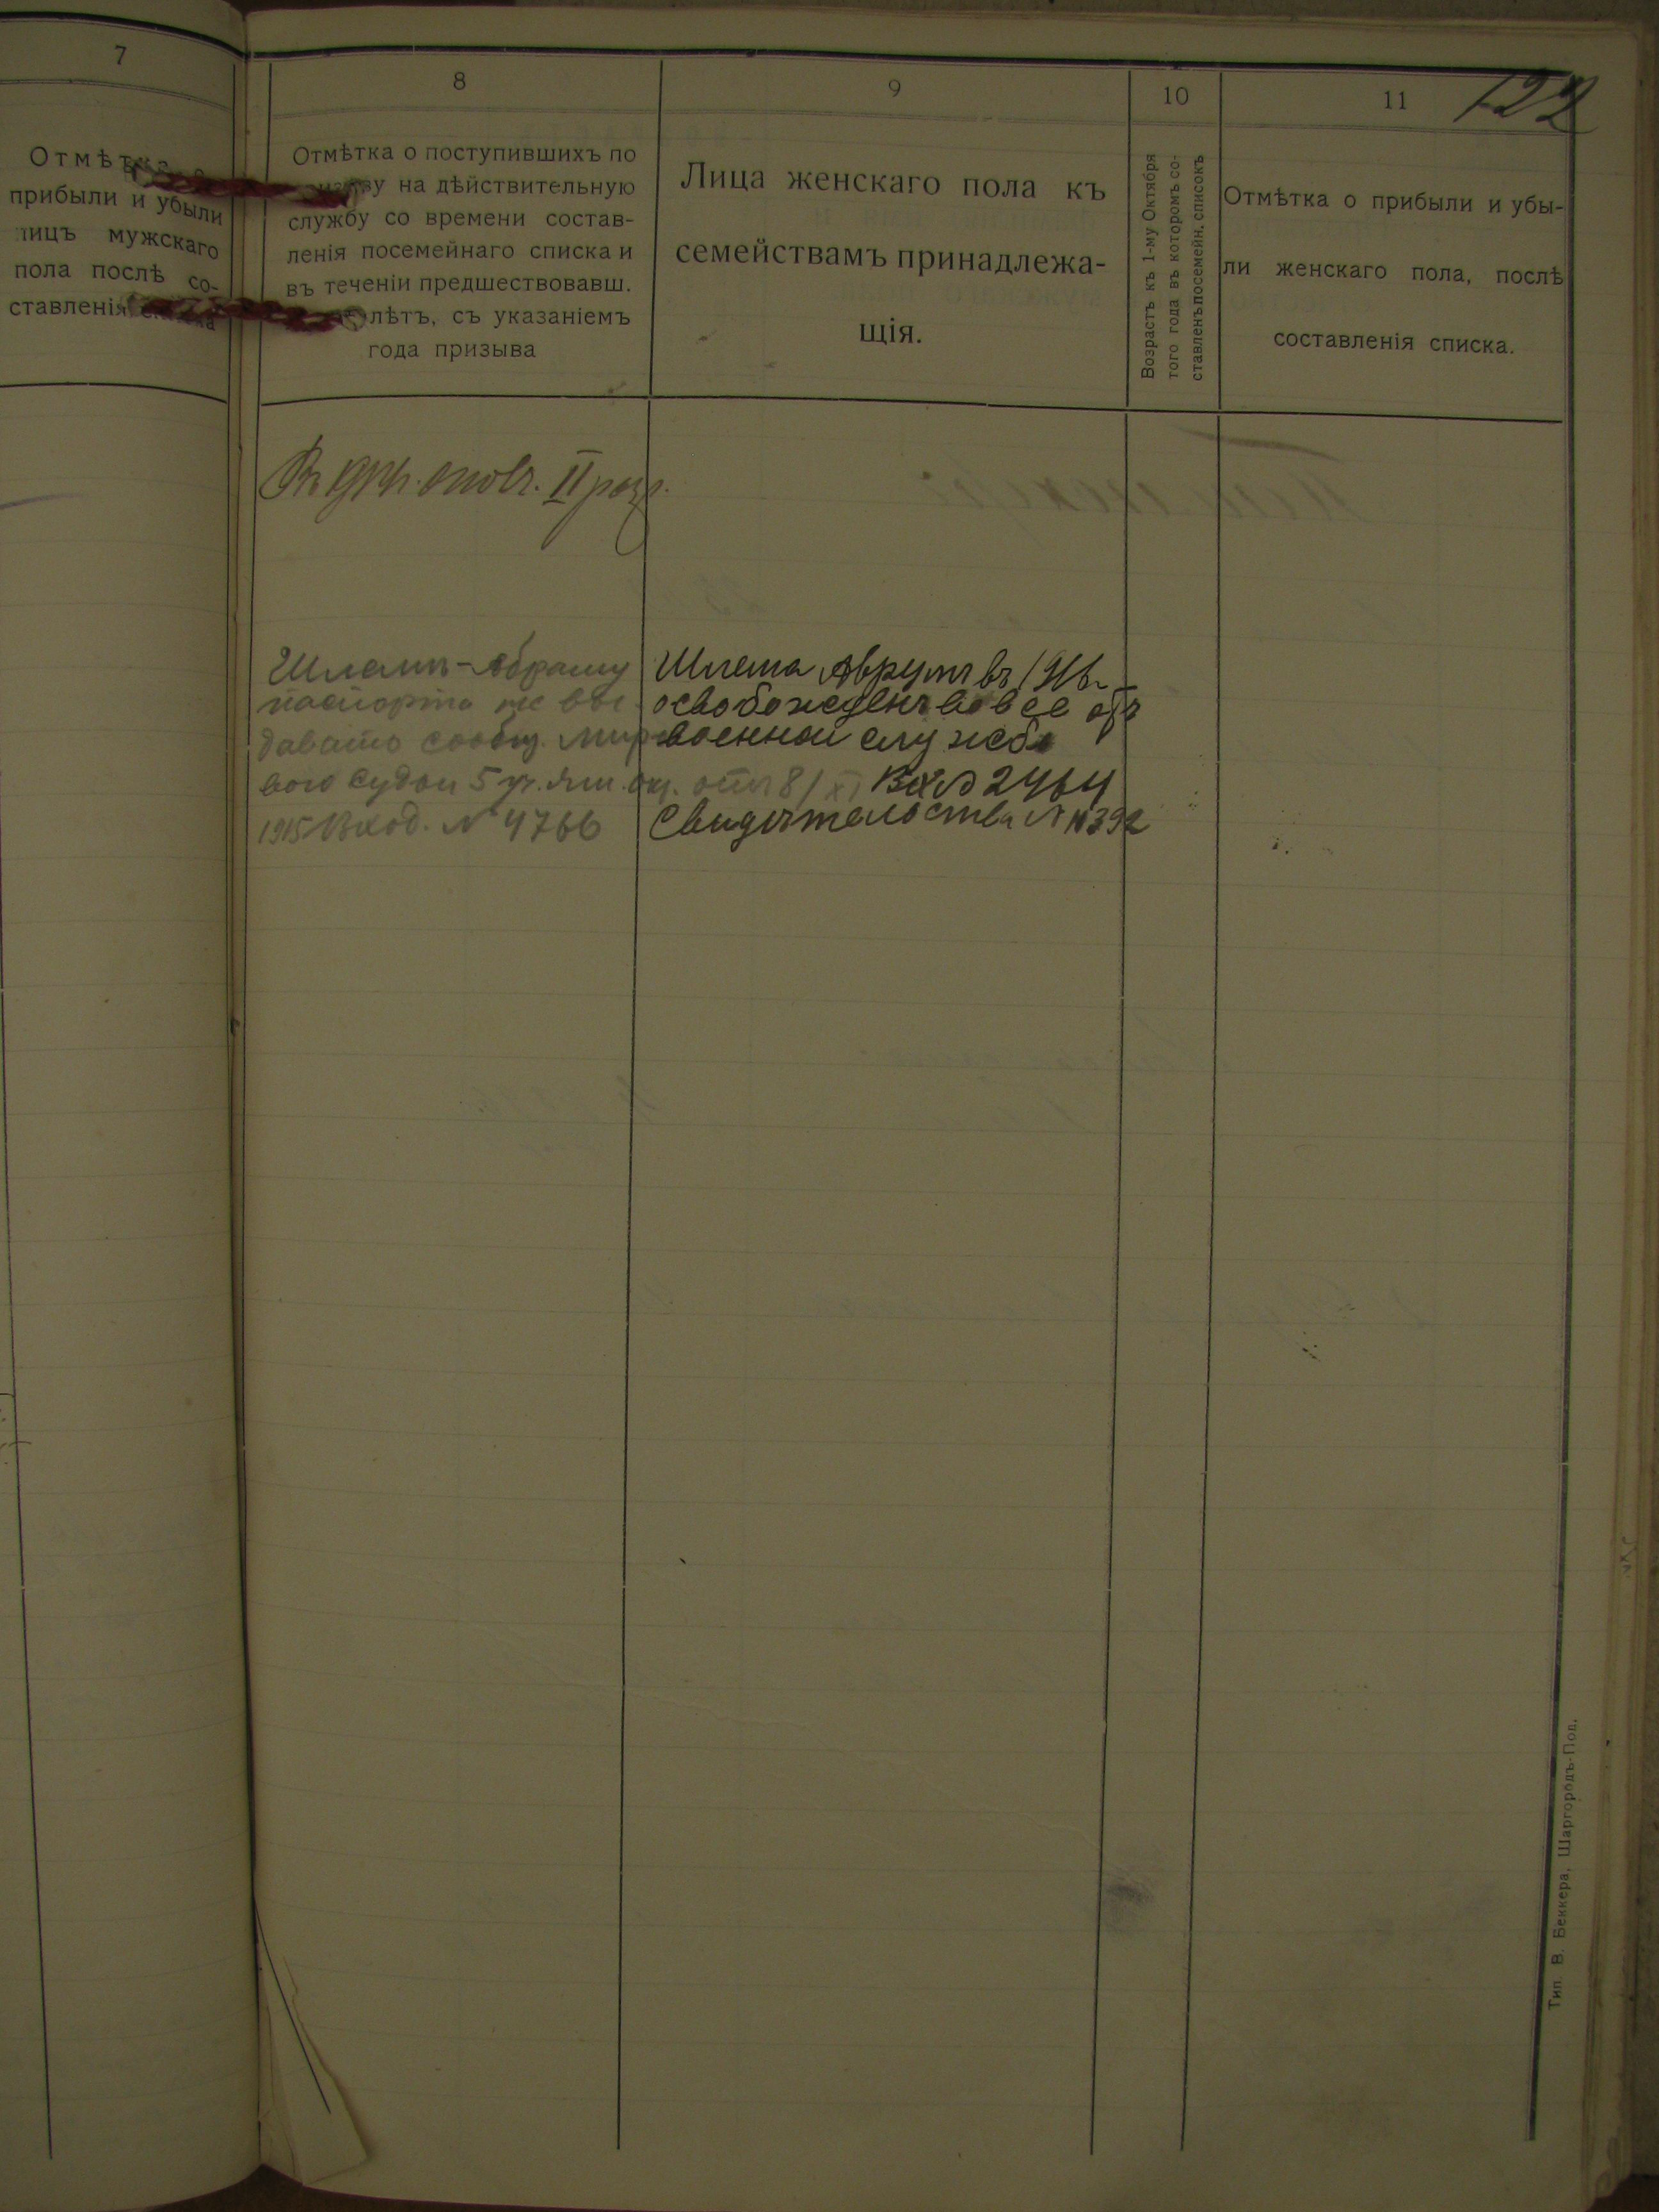 7
Отмѣтка о
прибыли и убыли
лицъ мужскаго
пола послѣ со-
ставленія списка
8
Отмѣтка о поступившихъ по
призыву на дѣйствительную
службу со времени состав-
ленія посемейнаго списка и
въ теченіи предшествовавш.
лѣтъ, съ указаніемъ
года призыва
9
Лица женскаго пола къ
семействамъ принадлежа-
щія.
10
Возрастъ къ 1-му Октября
того года въ которомъ со-
ставленъ посемейн. списокъ
11
Отмѣтка о прибыли и убы-
ли женскаго пола, послѣ
составленія списка.
122
II разр.
Шлемъ-Абраму
паспорта не вы
давать сообщ. Миро
вого Судьи 5 уч. Ям. окр. отъ 8/XI
1915 Вход. N 4766
Шлема Аврумъ въ
освобожденъ вовсе отъ
военной службы
Вх. 2464
Свидѣтельства N 14392
Тип. В. Беккера, Шаргородъ-Под.